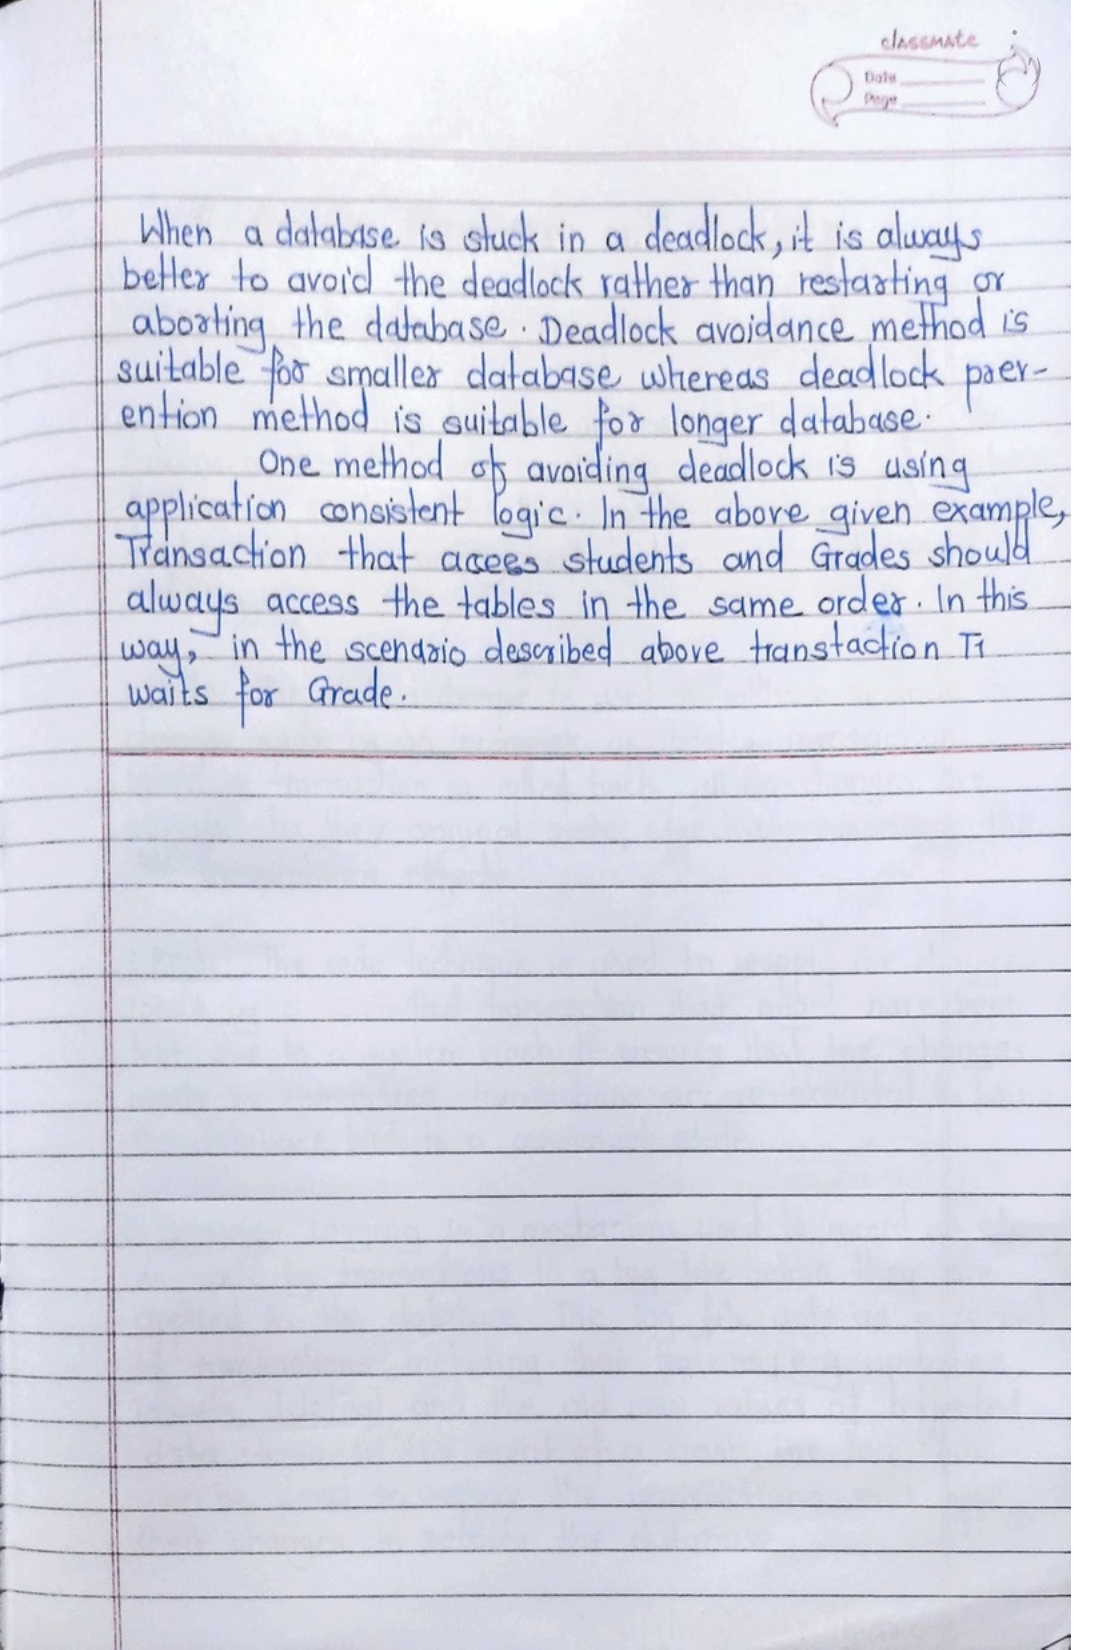 classmate
Date
Page
When a database is stuck in a deadlock, it is always
better to avoid the deadlock rather than restarting or
aborting the database. Deadlock avoidance method is
suitable for smaller database whereas deadlock paer-
ention method is suitable for longer database.
One method of avoiding deadlock is using
application consistent logic. In the above given example,
Transaction that acees students and Grades should
always access the tables in the same order. In this
way, in the scenario described above transtaction T1
waits for Grade.